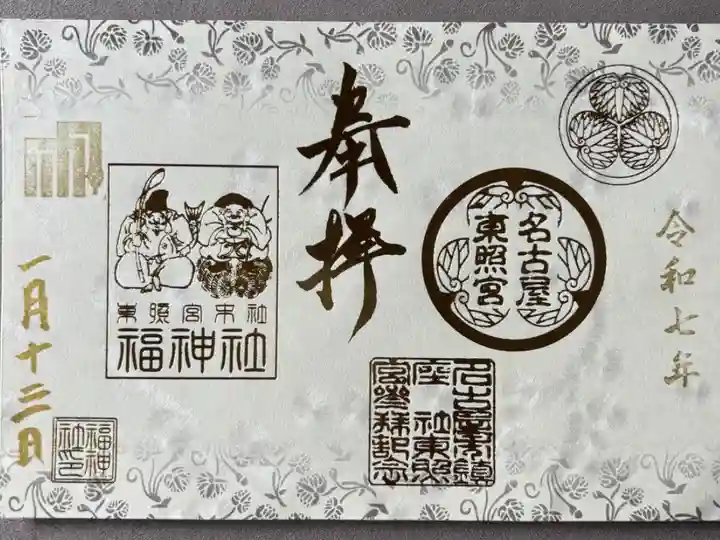 令和七年
名古屋
東照宮
名古屋鎮
座 社東照
宮参拝記念
奉拝
東照宮末社
福神社
一月十三日
福神
社印